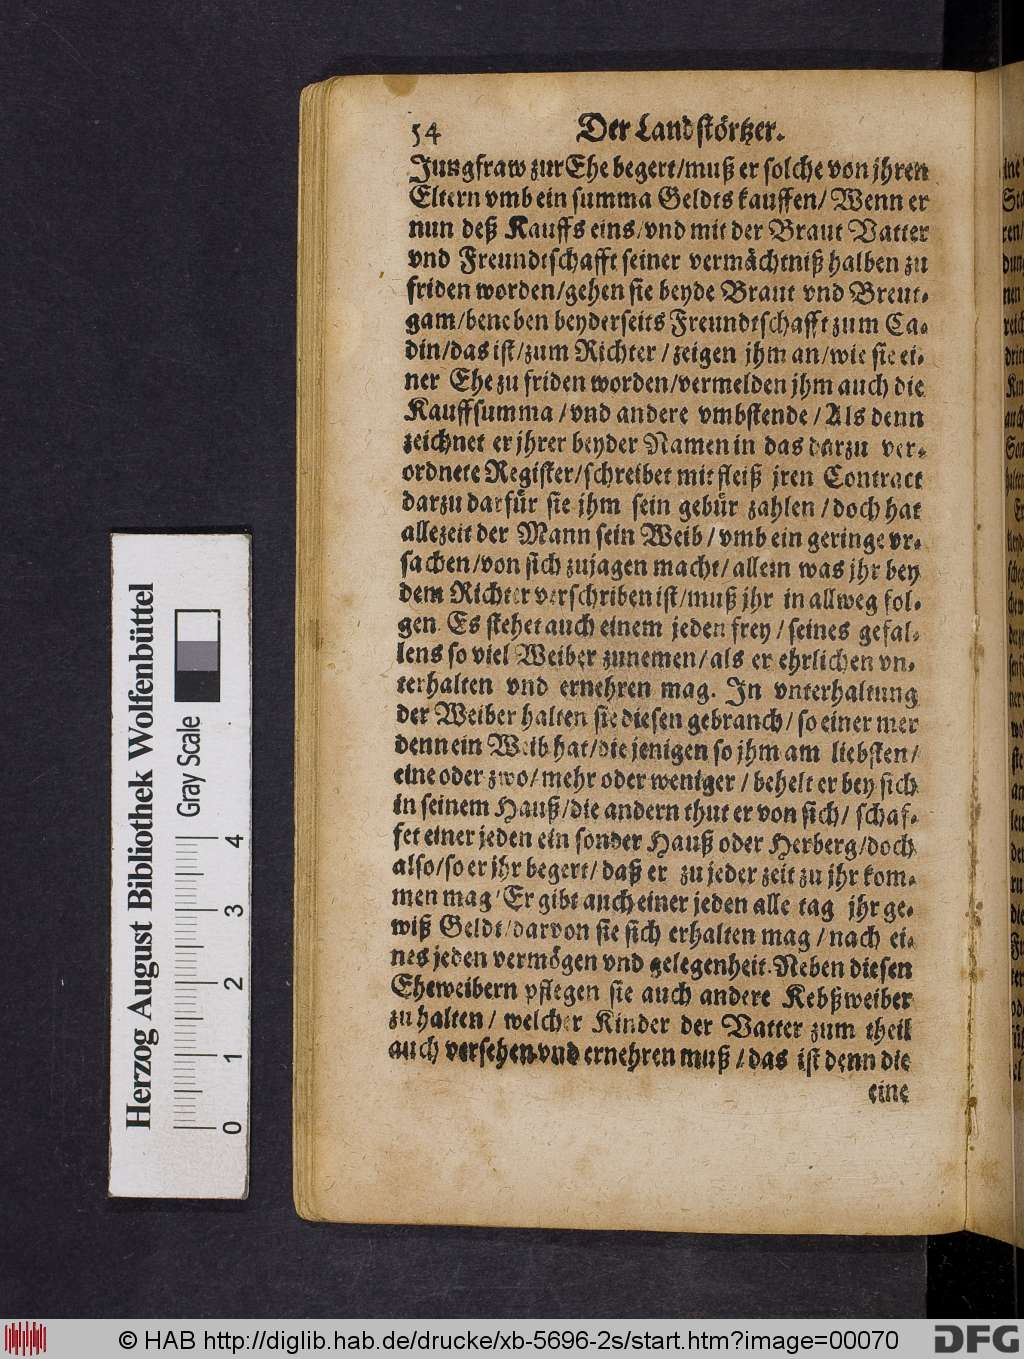 54 Der Landstörtzer.
Jungfraw zur Ehe begert/muß er solche von jhren
Eltern vmb ein summa Geldts kauffen/ Wenn er
nun deß Kauffs eins/vnd mit der Braut Vatter
vnd Freundtschafft seiner vermächtniß halben zu
friden worden/gehen sie beyde Braut vnd Breut-
gam/beneben beyderseits Freundtschafft zum Ca-
din/das ist/zum Richter/zeigen jhm an/wie sie ei-
ner Ehe zu friden worden/vermelden jhm auch die
Kauffsumma/vnd andere vmbstende/Als denn
zeichnet er jhrer beyder Namen in das darzu ver-
ordnete Register/schreibet mit fleiß jren Contract
darzu darfür sie jhm sein gebür zahlen/doch hat
allezeit der Mann sein Weib/vmb ein geringe vr-
sachen/von sich zujagen macht/allein was jhr bey
dem Richter verschriben ist/muß jhr in allweg fol-
gen. Es stehet auch einem jeden frey/seines gefal-
lens so viel Weiber zunemen/als er ehrlichen vn-
terhalten vnd ernehren mag. In vnterhaltung
der Weiber halten sie diesen gebrauch/so einer mer
denn ein Weib hat/die jenigen so jhm am liebsten/
eine oder zwo/mehr oder weniger/behelt er bey sich
in seinem Hauß/die andern thut er von sich/ schaf-
fet einer jeden ein sonder Hauß oder Herberg/doch
also/so er jhr begert/daß er zu jeder zeit zu jhr kom-
men mag/Er gibt auch einer jeden alle tag jhr ge-
wiß Geldt/darvon sie sich erhalten mag/nach ei-
nes jeden vermögen vnd gelegenheit. Neben diesen
Eheweibern pflegen sie auch andere Kebßweiber
zu halten/ welcher Kinder der Vatter zum theil
auch versehen vnd ernehren muß/das ist denn die
eine
Herzog August Bibliothek Wolfenbüttel
Gray Scale
0 1 2 3 4
© HAB http://diglib.hab.de/drucke/xb-5696-2s/start.htm?image=00070
DFG